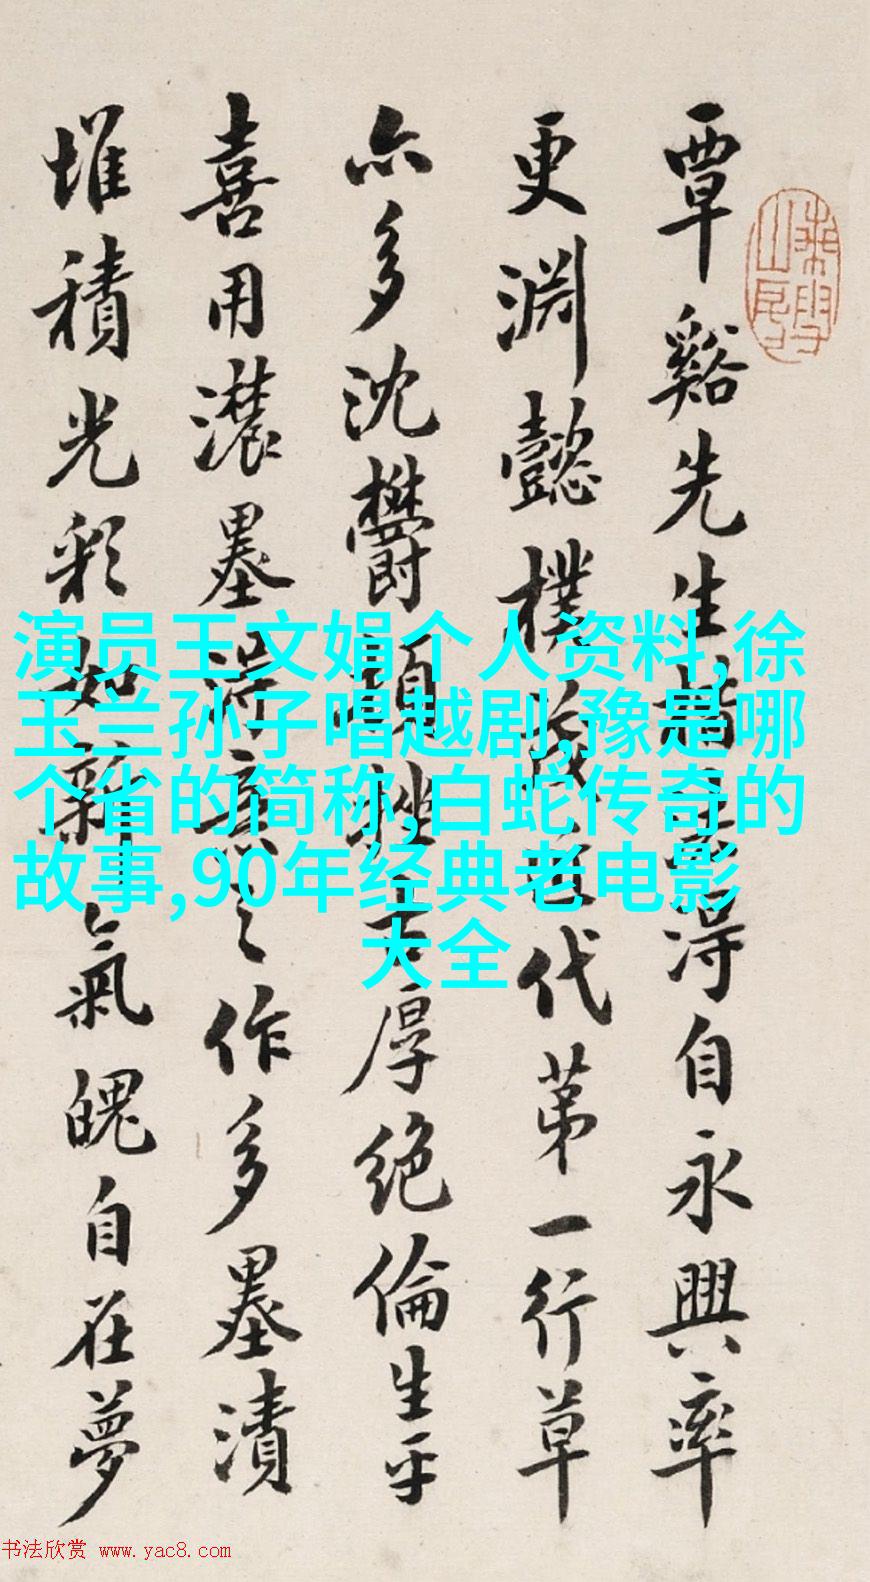 覃谿先生楷書得自永興率
更淵懿樸茂爲代第一行草
亦多沈欝頓挫古厚絕倫生平
喜用濃墨得意之作多墨漬
堆積光彩如新氣魄自在夢
演员王文娟个人资料,徐
玉兰孙子唱越剧,豫是哪
个省的简称,白蛇传奇的
故事,90年经典老电影
大全
书法欣赏 www.yac8.com